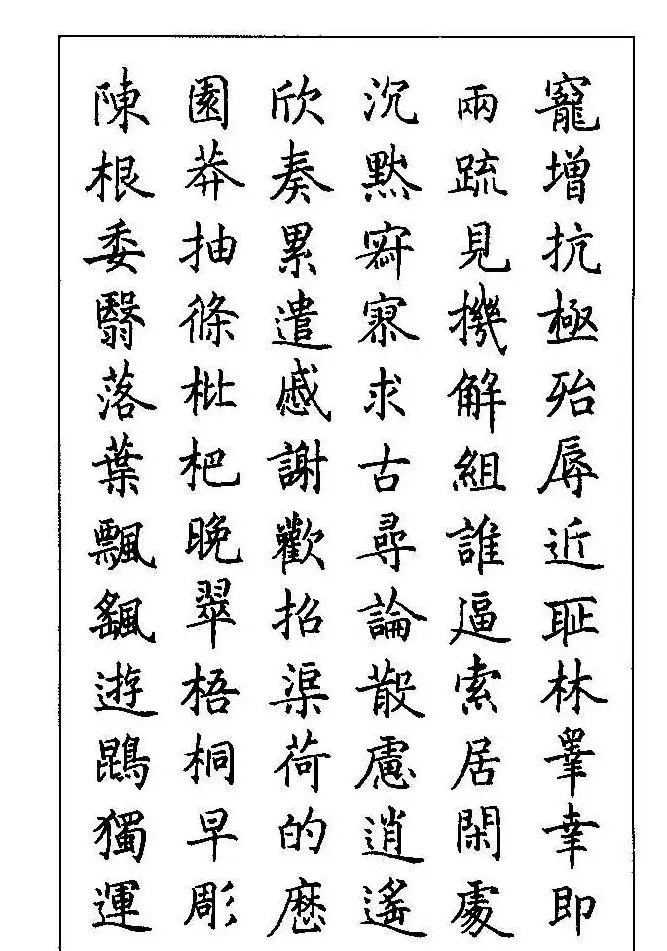 寵增抗極殆辱近恥林睪幸即
兩疏見機解組誰逼索居閑處
沉黙寂寥求古尋論散慮逍遙
欣奏累遣慼謝歡招渠荷的歷
園莽抽條枇杷晚翠梧桐早彫
陳根委翳落葉飄颻遊鵾獨運